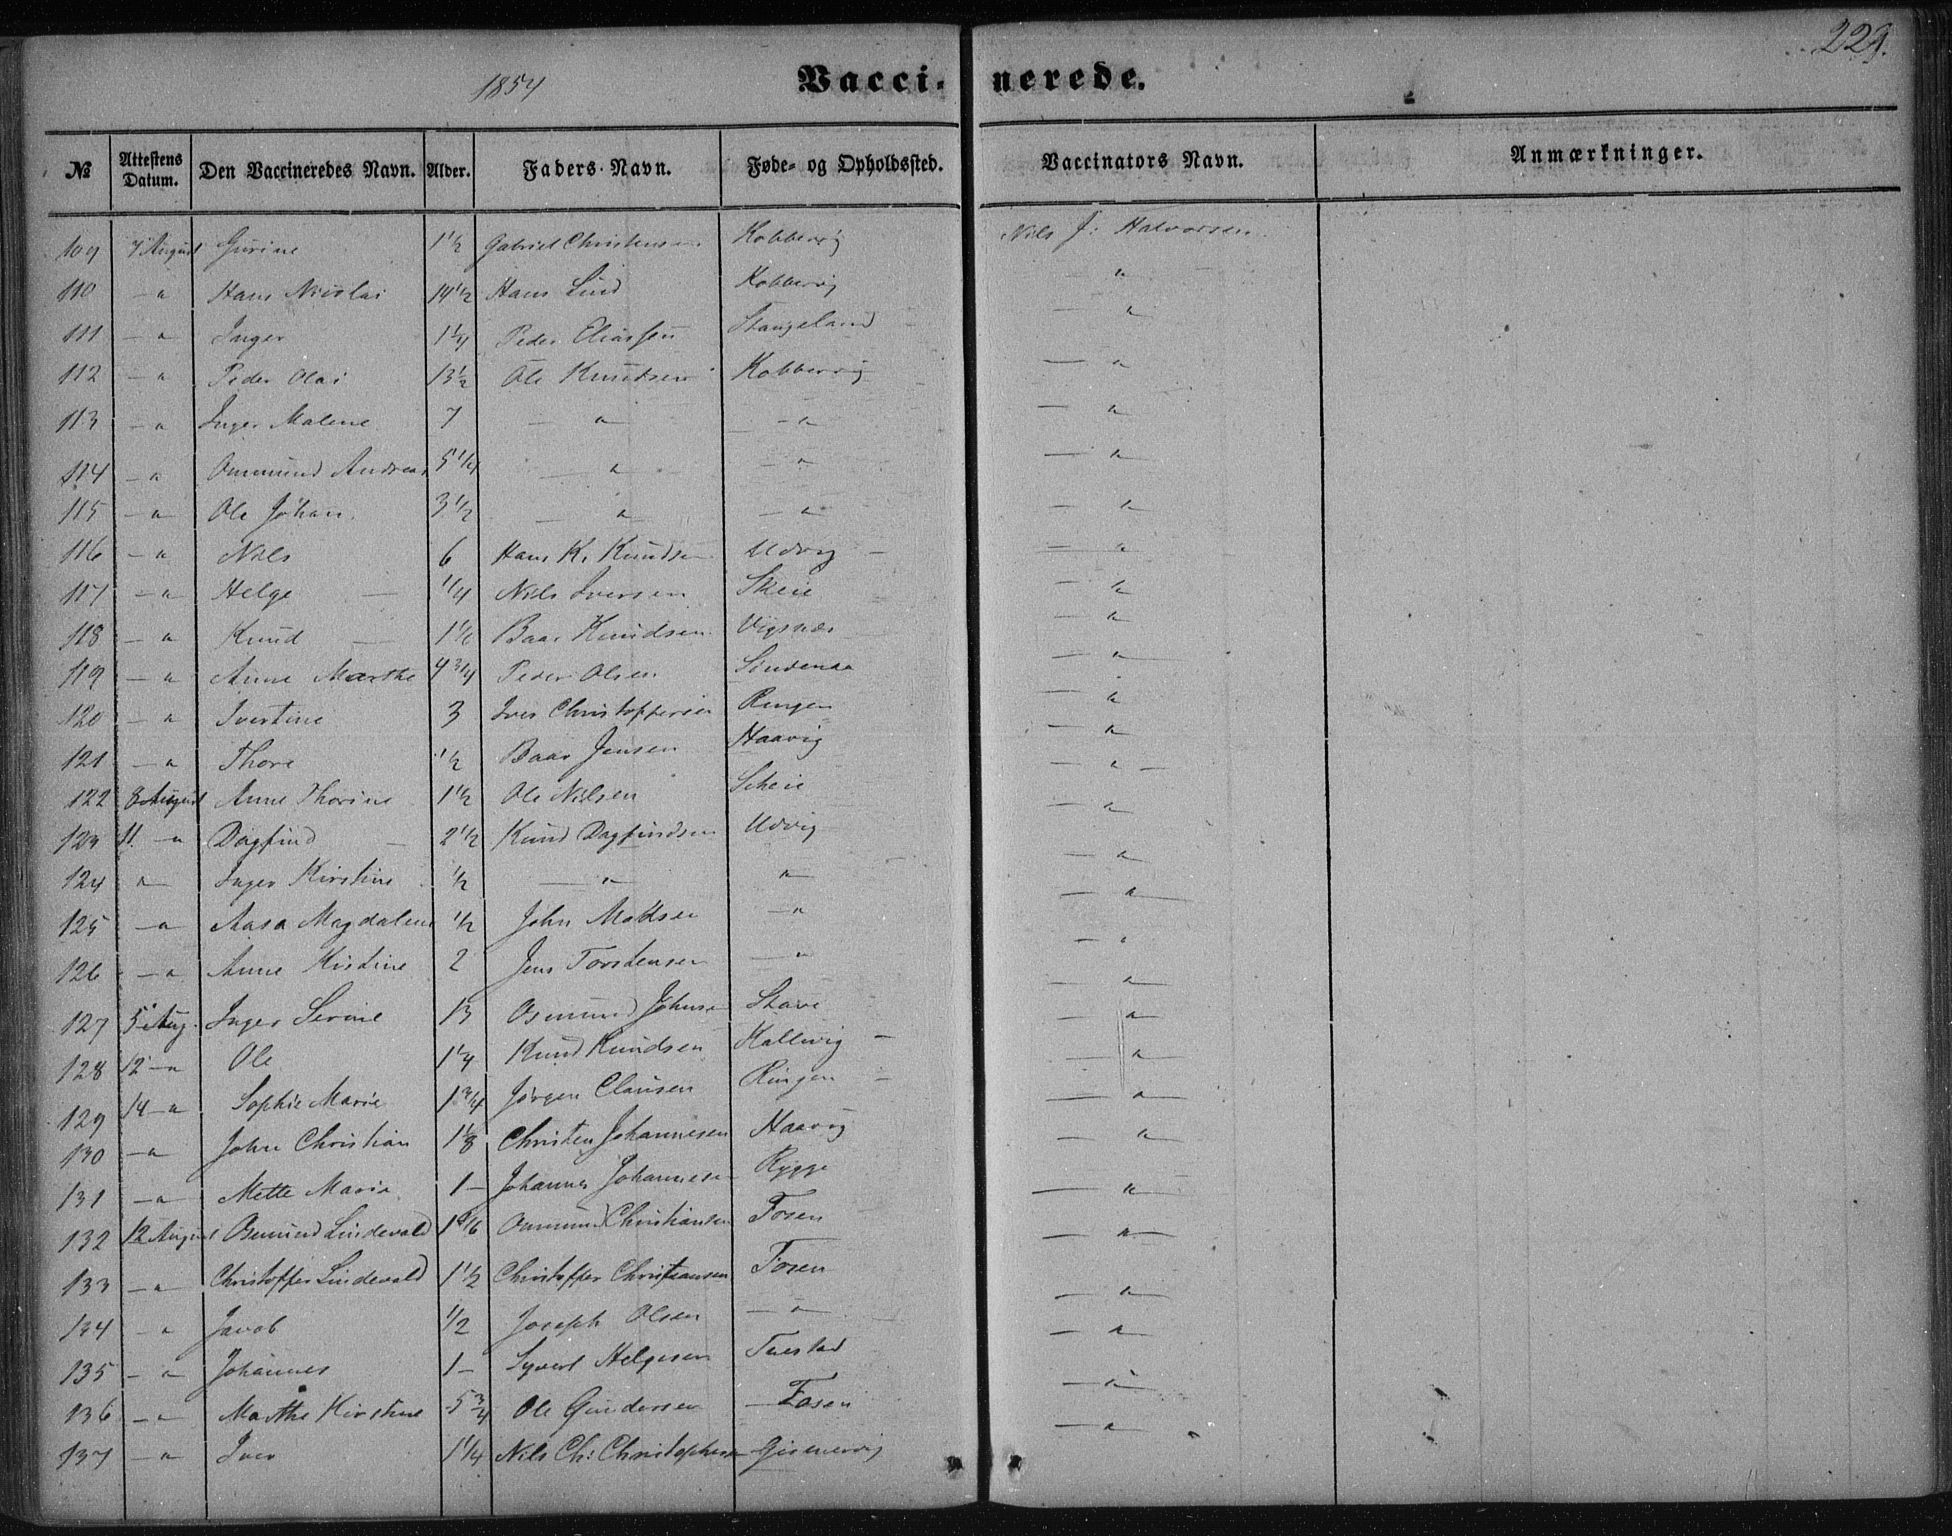 229.
1854
Vaccinerede.
№ Attestens Datum. Den Vaccineredes Navn. Alder. Faders Navn. Føde- og Opholdssted. Vaccinators Navn. Anmærkninger.
109 7 August Gurine 1 1/2 Gabriel Christensen Kobbervig Nils J: Halvorsen
110 — " Hans Nicolai 14 1/2 Hans Lind Kobbervig — "
111 — " Inger 1 1/4 Peder Eliassen Stangeland — "
112 — " Peder Olai 13 1/2 Ole Knudsen Kobbervig — "
113 — " Inger Malene 7 — " — " — "
114 — " Ommund Andreas 5 1/4 — " — " — "
115 — " Ole Johan 3 1/2 — " — " — "
116 — " Nils 6 Hans K. Knudsen Udvig — "
117 — " Helge 1/4 Nils Iversen Skeie — "
118 — " Knud Baar Knudsen Vigsnæs — "
119 — " Anne Marthe 4 3/4 Peder Olsen — "
120 — " Ivertine 3 Iver Christophersen Ringen "
121 — " Thore 1/2 Baar Jensen Haavig — "
122 8 August Anne Thorine 1 1/2 Ole Nilsen Scheie — "
123 11 — " Dagfind 2 1/2 Knud Dagfindsen Udvig — "
124 " Inger Kirstine 1/2 — " " — "
125 — " Aasa Magdalene 1/2 John Matsen — " — "
126 — " Anne Kistine 2 Jens Torstensen — " — "
127 5 Aug. Inger Serine 13 Osmund Johnsen Stave — "
128 12 — " Ole 1 1/4 Knud Knudsen Hallevig — "
129 14 — " Sophie Marie 1 3/4 Jörgen Clausen Ringen — "
130 — " John Christian 1 1/8 Christen Johannesen Haavig — "
131 — " Mette Maria 1 — Johannes Johannesen Rygge — "
132 12 August Osmund Lindevald Ommund Christiansen Fosen — "
133 — " Christoffer Lindevald 1 1/2 Christoffer Christiansen Fosen — "
134 — " Jacob 1/2 Joseph Olsen — " — "
135 — " Johannes 1 — Syvert Helgesen Tuestad — "
136 — " Marthe Kirstine 5 3/4 Ole Gundersen Fosen — "
137 — " Iver 1 1/4 Nils Ch: Christophersen — "